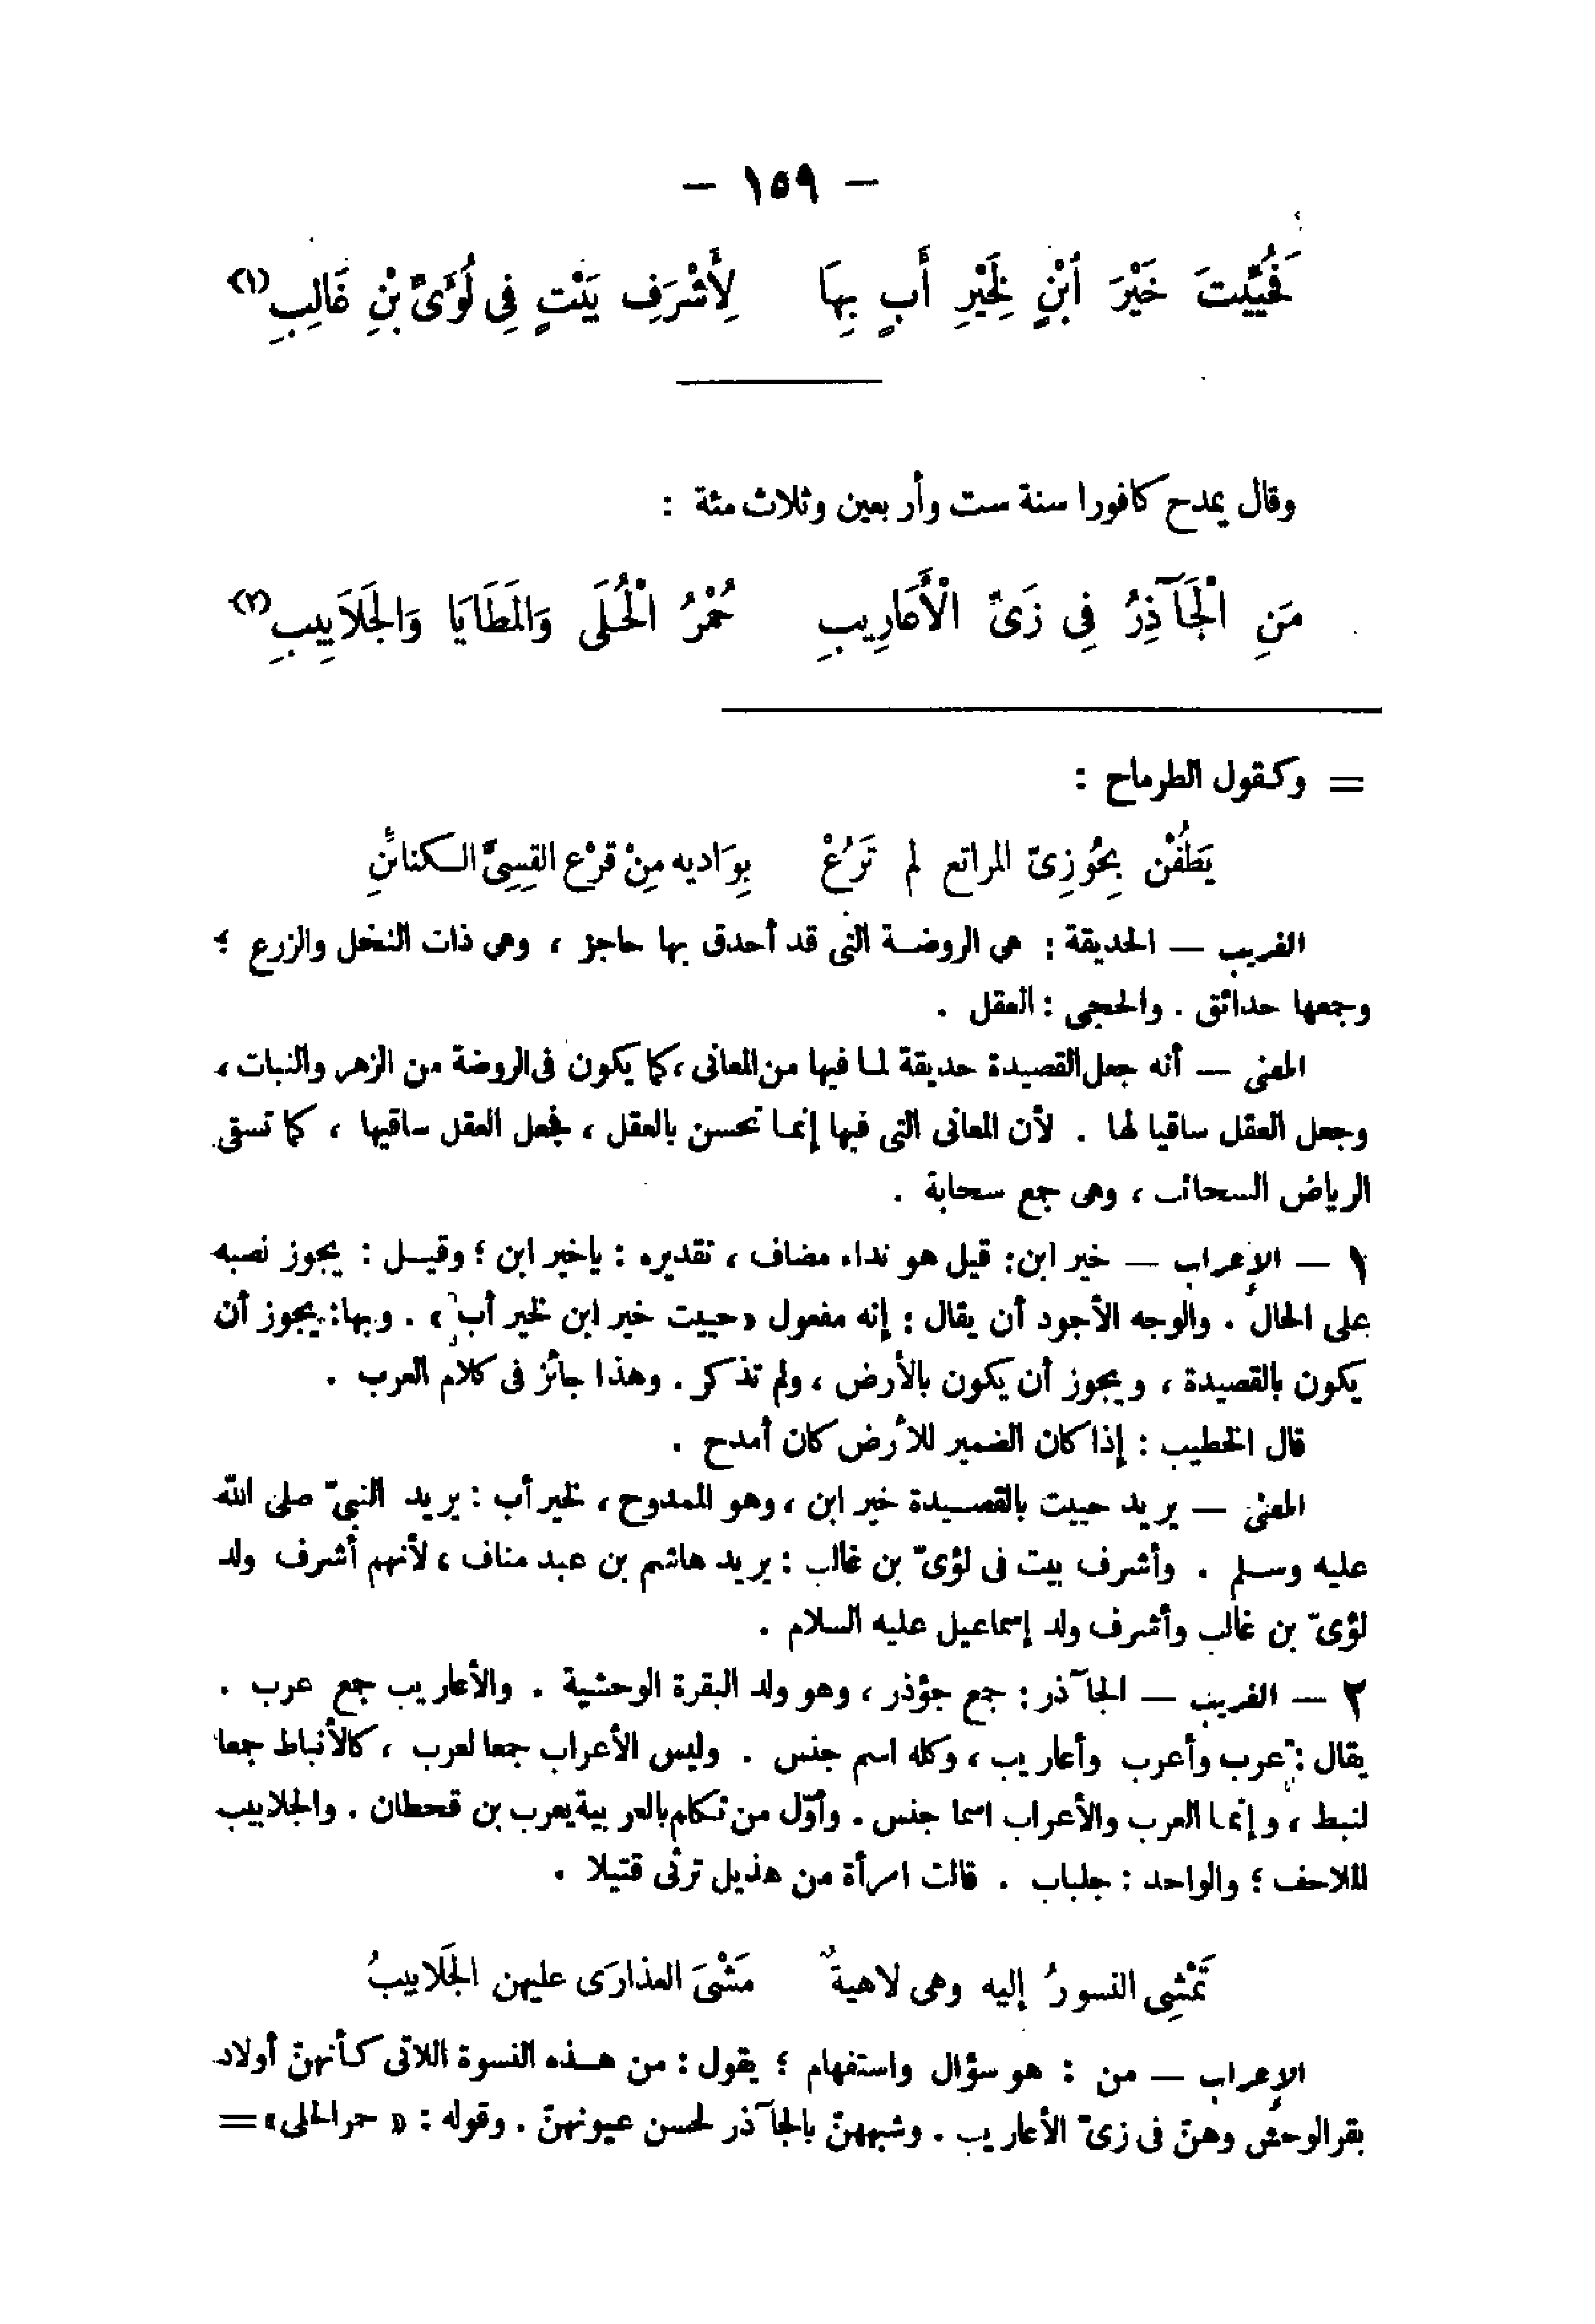 — ١٥٩ —
فَحُيِّيتَ خَيْرَ ٱبْنٍ لِخَيْرِ أَبٍ بِهَا لِأَشْرَفِ بَيْتٍ فِى لُؤَىِّ بْنِ غَالِبِ (١)
وقال يمدح كافورا سنة ست وأربعين وثلاث مئة :
مَنِ الْجَآذِرُ فِى زَىِّ الْأَعَارِيبِ حُمْرُ الْحُلَى وَالْمَطَايَا وَالْجَلاَبِيبِ (٢)
= وكقول الطرماح :
يَطُفْن بِحُوزِىّ المراتع لم تَرُعْ بِوَاديه مِنْ قرْع القِسِىِّ الكنائنِ
الغريب — الحديقة : هى الروضة التى قد أحدق بها حاجز ، وهى ذات النخل والزرع ؛
وجمعها حدائق . والحجى : العقل .
المعنى — أنه جعل القصيدة حديقة لما فيها من المعانى ، كما يكون فى الروضة من الزهر والنبات ،
وجعل العقل ساقيا لها . لأن المعانى التى فيها إنما تحسن بالعقل ، فجعل العقل ساقيها ، كما تسقى
الرياض السحائب ، وهى جمع سحابة .
١ — الإعراب — خير ابن : قيل هو نداء مضاف ، تقديره : ياخير ابن ؛ وقيل : يجوز نصبه
على الحال . والوجه الأجود أن يقال : إنه مفعول «حييت خير ابن لخير أب» . وبها : يجوز أن
يكون بالقصيدة ، ويجوز أن يكون بالأرض ، ولم تذكر . وهذا جائز فى كلام العرب .
قال الخطيب : إذا كان الضمير للأرض كان أمدح .
المعنى — يريد حييت بالقصيدة خير ابن ، وهو الممدوح ، لخير أب : يريد النبىّ صلى الله
عليه وسلم . وأشرف بيت فى لؤىّ بن غالب : يريد هاشم بن عبد مناف ، لأنهم أشرف ولد
لؤىّ بن غالب وأشرف ولد إسماعيل عليه السلام .
٢ — الغريب — الجآذر : جمع جؤذر ، وهو ولد البقرة الوحشية . والأعاريب جمع عرب .
يقال : عرب وأعرب وأعاريب ، وكله اسم جنس . وليس الأعراب جمعا لعرب ، كالأنباط جمعا
لنبط ، وإنما العرب والأعراب اسما جنس . وأوّل من تكلم بالعربية يعرب بن قحطان . والجلابيب
الملاحف ؛ والواحد : جلباب . قالت امرأة من هذيل ترثى قتيلا .
تَمْشِى النسورُ إليه وهى لاهيةٌ مَشْىَ العذارَى عليهن الجَلابيبُ
الإعراب — من : هو سؤال واستفهام ؛ يقول : من هذه النسوة اللاتى كأنهنّ أولاد
بقر الوحش وهنّ فى زىّ الأعاريب . وشبههنّ بالجآذر لحسن عيونهنّ . وقوله : « حمر الحلى» =